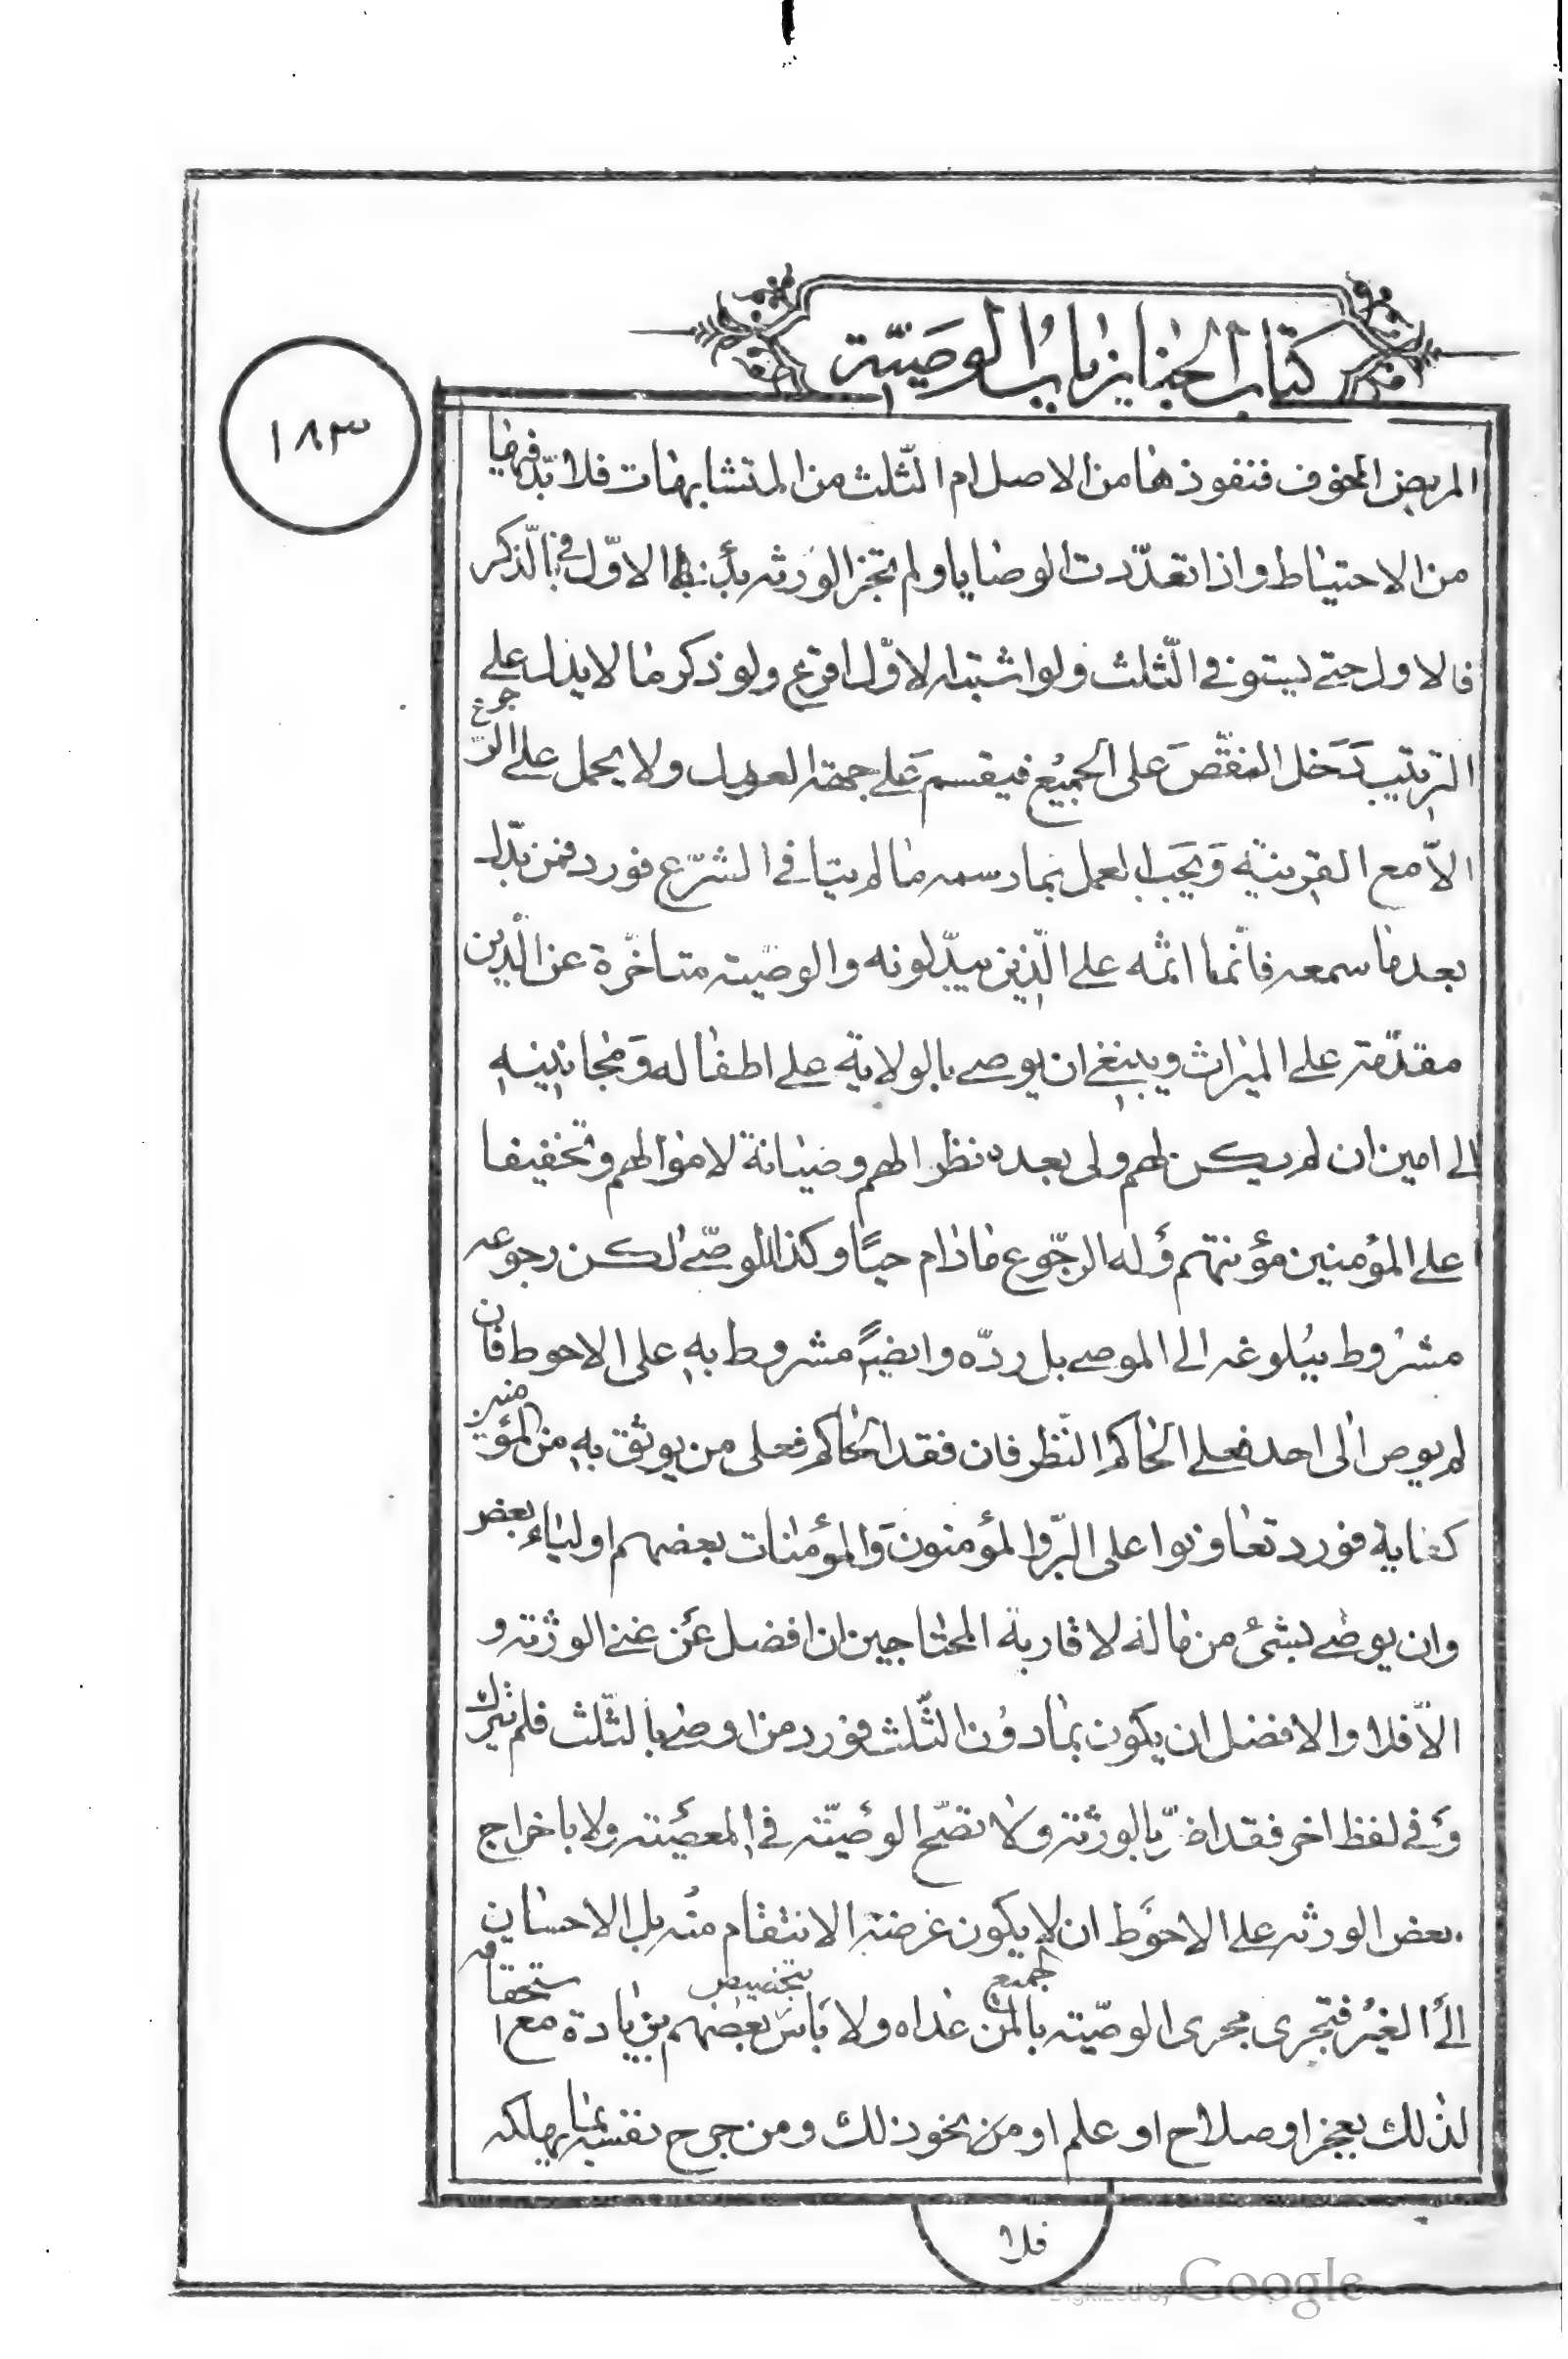 كتاب الجنايز باب الوصيّة
١٨٣
المريض المخوف فنفوذها من الاصل ام الثّلث من المتشابهات فلا بدّ فيها
من الاحتياط واذا تعدّدت الوصايا ولم تجز الورثه بدأ بالاوّل في الذّكر
فالاول حتى يستوفي الثّلث ولو اشتبه الاوّل اقرع ولو ذكر ما لا يدل على
الترتيب دَخل النّقص على الجميع فيقسم على جهة العول ولا يحمل على الرّجوع
الاّ مع القرينة وَيَجب العمل بما رسمه ما لم يناف الشّرع فورد فمن بدّله
بعد ما سمعه فانّما اثمه على الّذين يبدّلونه والوصيّة متاخّرة عن الدّين
مقدّمة على الميراث وينبغي ان يوصي بالولاية على اطفاله وَمجانينه
الى امين ان لم يكن لهم ولى بعده نظرا لهم وصيانة لاموالهم وتخفيفا
على المؤمنين مؤنتهم وَله الرّجوع مادام حيّا وكذا للوصّي لكن رجوعه
مشرُوط ببُلوغه الى الموصي بل ردّه وايضاً مشروط به على الاحوط فان
لم يوص الى احد فعلى الحاكم النّظر فان فقد الحاكم فعلى من يوثق به من المؤمنين
كفاية فورد تعاونوا على البرّ والمؤمنونَ وَالمؤمنات بعضهم اولياء بعض
وان يوصي بشئ من ماله لاقاربه المحتاجين ان افضل عَن غنى الورثة و
الاّ فلا والافضل ان يكون بمادوُن الثّلث فورد من اوصى بالثّلث فلم يترك
وَفي لفظ اخر فقد اضرّ بالورثة ولا تصّح الوصيّة في المعصيَة ولا باخراج
بعض الورثه على الاحوَط ان لا يكون غرضه الانتقام منه بل الاحسان
الىَ الغير فتجرى مجرى الوصيّة بالجميع لمن عداه ولا بَاس بتخصيص بعضهم بزيادة مع استحقاقه
لذلك بعجز او صلاح او علم او مَن نحو ذلك ومن جرح نفسه بما يهلكه
فلا
Digitized by Google